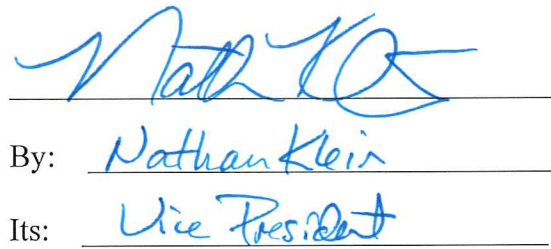 Nathan Klein
By: Nathan Klein
Its: Vice President